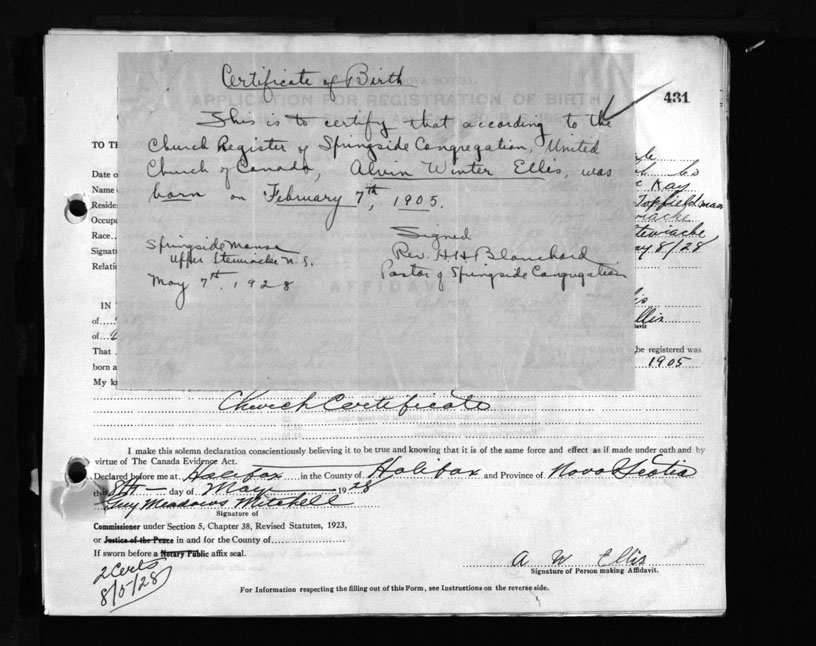 Certificate of Birth
APPLICATION FOR REGISTRATION OF BIRTH
431
This is to certify that according to the
Church Register of Springside Congregation, United
Church of Canada, Alvin Winter Ellis, was
born on February 7th, 1905.
Signed
Springside Manse Rev. HH Blanchard
Upper Stewiacke N.S. Pastor of Springside Congregation
May 7th, 1928
AFFIDAVIT
TO TH
Date o
Name
Kay
Reside
Occup
Race
Stewiacke
Signat
8/28
Relati
IN
of
Ellis
of
That be registered was
born a 1905
My k
Church Certificate
I make this solemn declaration conscientiously believing it to be true and knowing that it is of the same force and effect as if made under oath and by
virtue of The Canada Evidence Act.
Declared before me at Halifax in the County of Halifax and Province of Nova Scotia
this 8th day of May 1928
Guy Meadows Mitchell
Signature of
Commissioner under Section 5, Chapter 38, Revised Statutes, 1923,
or Justice of the Peace in and for the County of
If sworn before a Notary Public affix seal.
A W Ellis
Signature of Person making Affidavit.
2 Certs
8/5/28
For Information respecting the filling out of this Form, see Instructions on the reverse side.